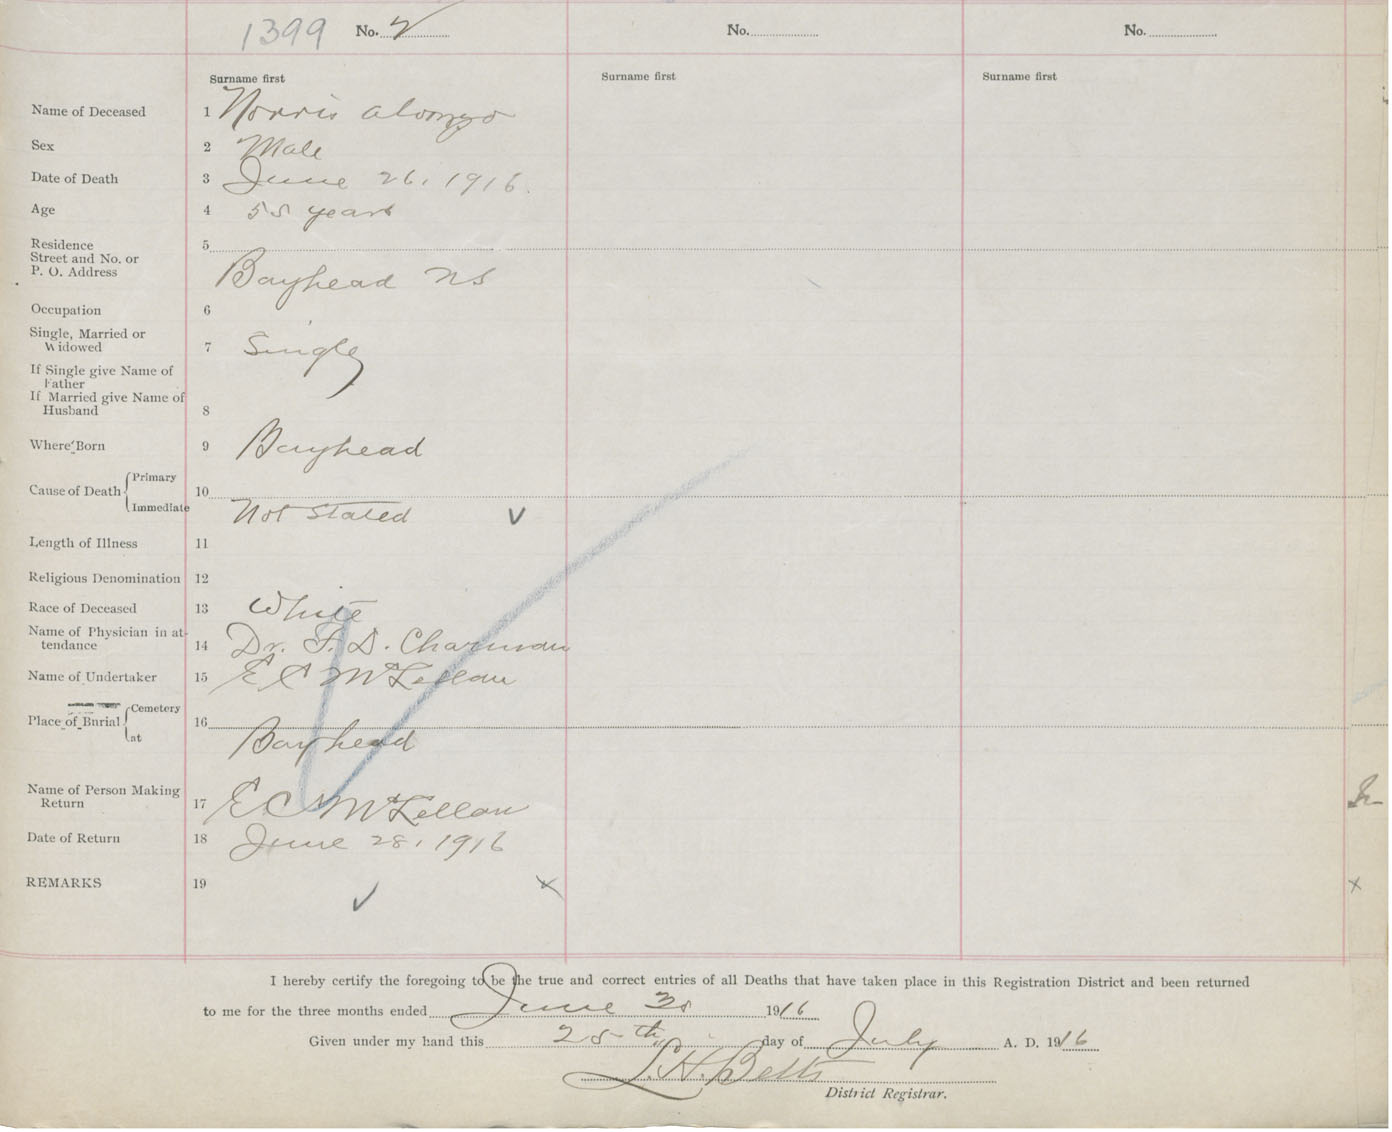 1399 No. 2 No. No.
Surname first Surname first Surname first
Name of Deceased 1 Norris Alonzo
Sex 2 Male
Date of Death 3 June 26, 1916.
Age 4 55 years
Residence 5
Street and No. or
P. O. Address Bayhead NS
Occupation 6
Single, Married or
Widowed 7 Single
If Single give Name of
Father
If Married give Name of
Husband 8
Where Born 9 Bayhead
Primary
Cause of Death 10
Immediate Not Stated
Length of Illness 11
Religious Denomination 12
Race of Deceased 13 White
Name of Physician in at-
tendance 14 Dr. F. D. Charman
Name of Undertaker 15 E C McLellan
Cemetery
Place of Burial 16
at Bayhead
Name of Person Making
Return 17 E C McLellan
Date of Return 18 June 28, 1916
REMARKS 19
I hereby certify the foregoing to be the true and correct entries of all Deaths that have taken place in this Registration District and been returned
to me for the three months ended June 30 1916
Given under my hand this 25th day of July A. D. 1916
L. H. Betts
District Registrar.